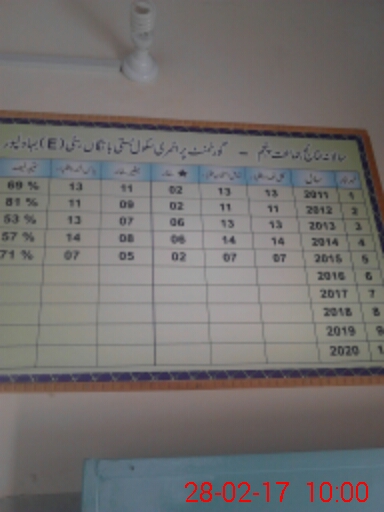 سالانہ نتائج جماعت پنجم - گورنمنٹ پرائمری سکول بستی (E) بہاولپور
نمبر شمار سال کل تعداد
1 2011 13 13 02 11 13 69 %
2 2012 11 11 02 09 11 81 %
3 2013 13 13 06 07 13 53 %
4 2014 14 14 06 08 14 57 %
5 2015 07 07 02 05 07 71 %
6 2016
7 2017
8 2018
9 2019
1 2020
28-02-17 10:00